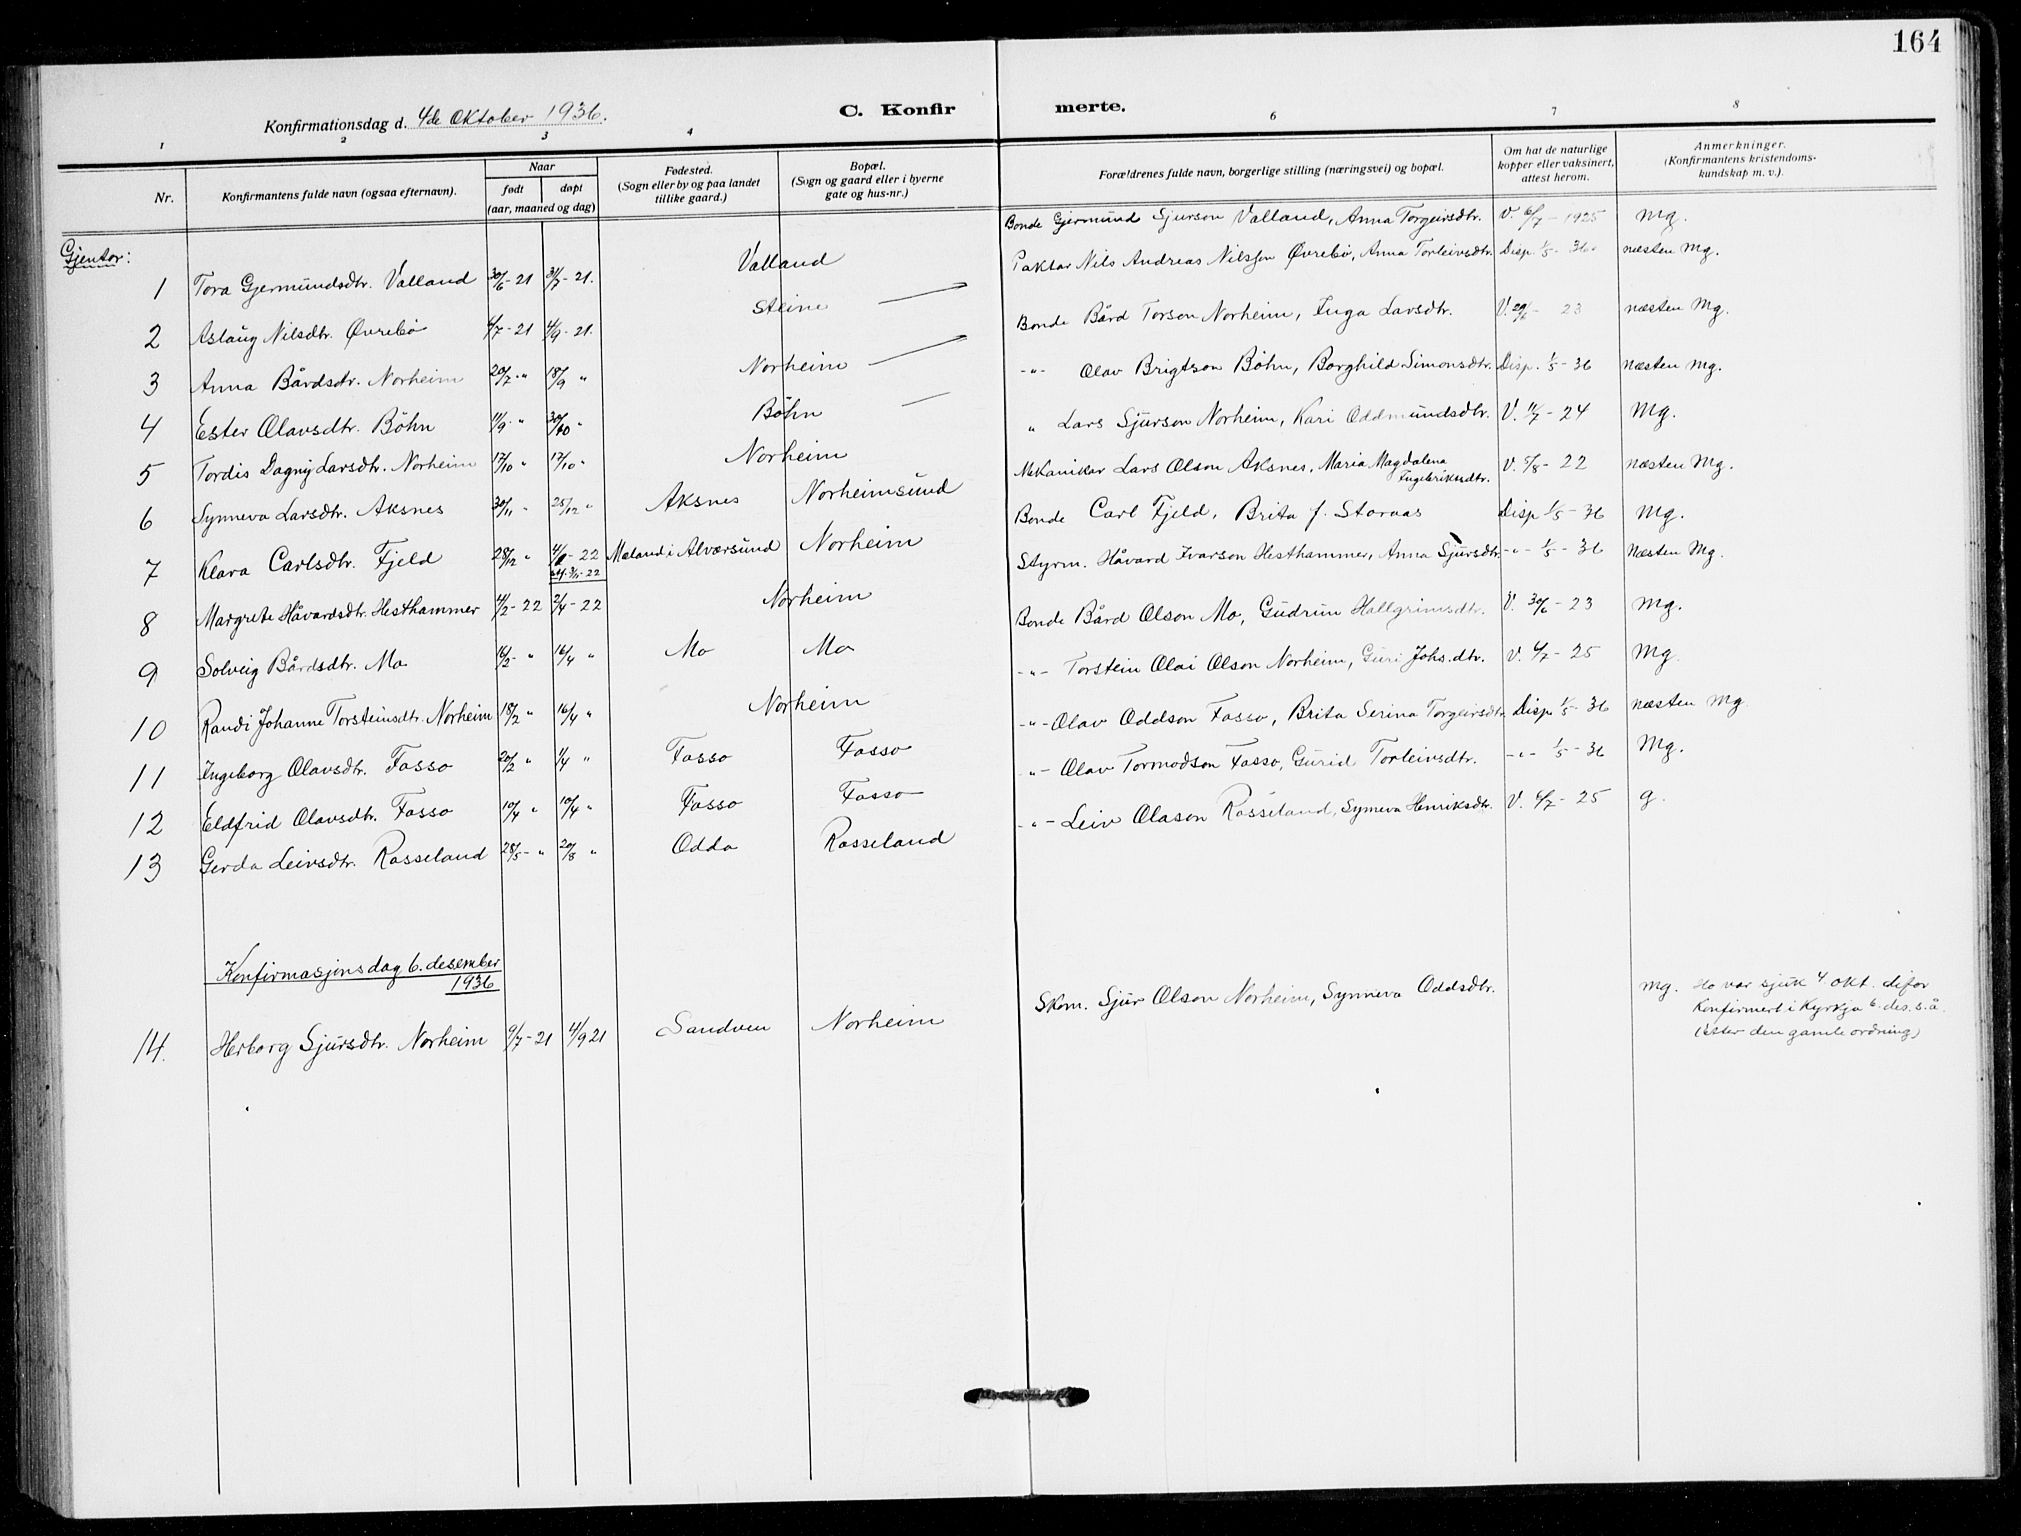 164
Konfirmationsdag d. 4de Oktober 1936.
C. Konfir merte.
1 2 3 4 6 7 8
Nr.
Konfirmantens fulde navn (ogsaa efternavn).
Naar
født
døpt
(aar, maaned og dag)
Fødested.
(Sogn eller by og paa landet
tillike gaard.)
Bopæl.
(Sogn og gaard eller i byerne
gate og hus-nr.)
Forældrenes fulde navn, borgerlige stilling (næringsvei) og bopæl.
Om hat de naturlige
kopper eller vaksinert,
attest herom.
Anmerkninger.
(Konfirmantens kristendoms-
kundskap m. v.).
Gjentor:
1 Tora Gjermundsdtr. Valland 30/6-21 31/7-21. Valland Bonde Gjermund Sjurson Valland, Anna Torgeirsdtr. V. 6/7-1925 Mg.
2 Aslaug Nilsdtr. Øvrebø 4/7-21 4/9-21. Steine — Paktar Nils Andreas Nilssen Øvrebø, Anna Torleivsdtr. Disp. 1/5-36 næsten Mg.
3 Anna Bårdsdtr. Norheim 20/7 " 18/9 " Norheim — Bonde Bård Torson Norheim, Inga Larsdtr. V. 29/6-23 næsten Mg.
4 Ester Olavsdtr. Böhn 11/9 " 30/10 " Böhn — -"- Olav Brigtson Böhn, Borghild Simonsdtr. Disp. 1/5-36 næsten Mg.
5 Tordis Dagny Larsdtr. Norheim 17/10 " 17/10 " Norheim " Lars Sjurson Norheim, Kari Oddmundsdtr. V. 11/7-24 Mg.
6 Synneva Larsdtr. Aksnes 30/11 " 25/12 " Aksnes Norheimsund Mekanikar Lars Olson Aksnes, Maria Magdalena Ingebriktsdtr. V. 5/8-22 næsten Mg.
7 Klara Carlsdtr. Fjeld 28/12 " Mæland i Alværsund Norheim Bonde Carl Fjeld, Brita f. Storaas Disp 1/5-36 Mg.
8 Margrete Håvardsdtr. Hesthammer 4/2-22 2/4-22 Norheim Styrm. Håvard Ivarson Hesthammer, Anna Sjursdtr. -"- 1/5-36 Næsten Mg.
9 Solveig Bårdsdtr. Mo 16/2- " 16/4 " Mo Mo Bonde Bård Olson Mo, Gudrun Hallgrimsdtr. V. 30/6-23 Mg.
10 Randi Johanne Torsteinsdtr. Norheim 18/2 " 16/4 " Norheim -"- Torstein Olai Olson Norheim, Guri Johs.dtr. V. 4/7-25 Mg.
11 Ingeborg Olavsdtr. Fosso 20/2 " 1/4 " Fosso Fosso -"- Olav Oddson Fosso, Brita Serina Torgeirsdtr. Disp 1/5-36 næsten Mg.
12 Eldfrid Olavsdtr. Fosso 10/4 " 10/4 " Fosso Fosso -"- Olav Tormodson Fosso, Gurid Torleivsdtr. -"- 1/5-36 Mg.
13 Gerda Leivsdtr. Rosseland 28/5- " 20/8 " Odda Rosseland -"- Leiv Olason Rosseland, Synneva Henriksdtr. V. 6/7-25 g.
Konfirmasjonsdag 6. desember
1936
14. Herborg Sjursdtr. Norheim 9/7-21 4/9 21 Sandven Norheim Skom. Sjur Olson Norheim, Synneva Oddsdtr. Mg. Ho var sjuk 4 okt. difor
konfirmert i Kyrkja 6. des. s.å.
(etter den gamle ordning)